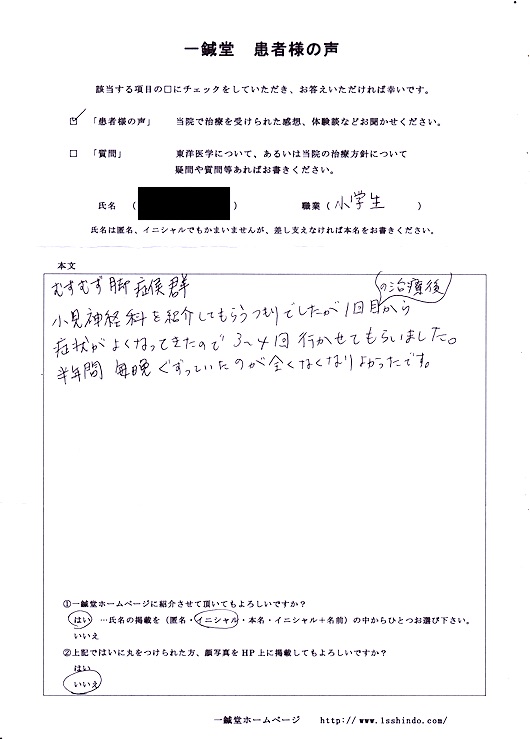 一鍼堂 患者様の声
該当する項目の□にチェックをしていただき、お答えいただければ幸いです。
☑ 「患者様の声」 当院で治療を受けられた感想、体験談などお聞かせください。
□ 「質問」 東洋医学について、あるいは当院の治療方針について
疑問や質問等あればお書きください。
氏名 ( ) 職業 ( 小学生 )
氏名は匿名、イニシャルでもかまいませんが、差し支えなければ本名をお書きください。
本文
むずむず脚症候群
の治療後
小児神経科を紹介してもらうつもりでしたが1回目から
症状がよくなってきたので3~4回行かせてもらいました。
半年間 毎晩ぐずっていたのが全くなくなりよかったです。
①一鍼堂ホームページに紹介させて頂いてもよろしいですか?
はい …氏名の掲載を(匿名・イニシャル・本名・イニシャル+名前)の中からひとつお選び下さい。
いいえ
②上記ではいに丸をつけられた方、顔写真をHP上に掲載してもよろしいですか?
はい
いいえ
一鍼堂ホームページ http://www.1sshindo.com/